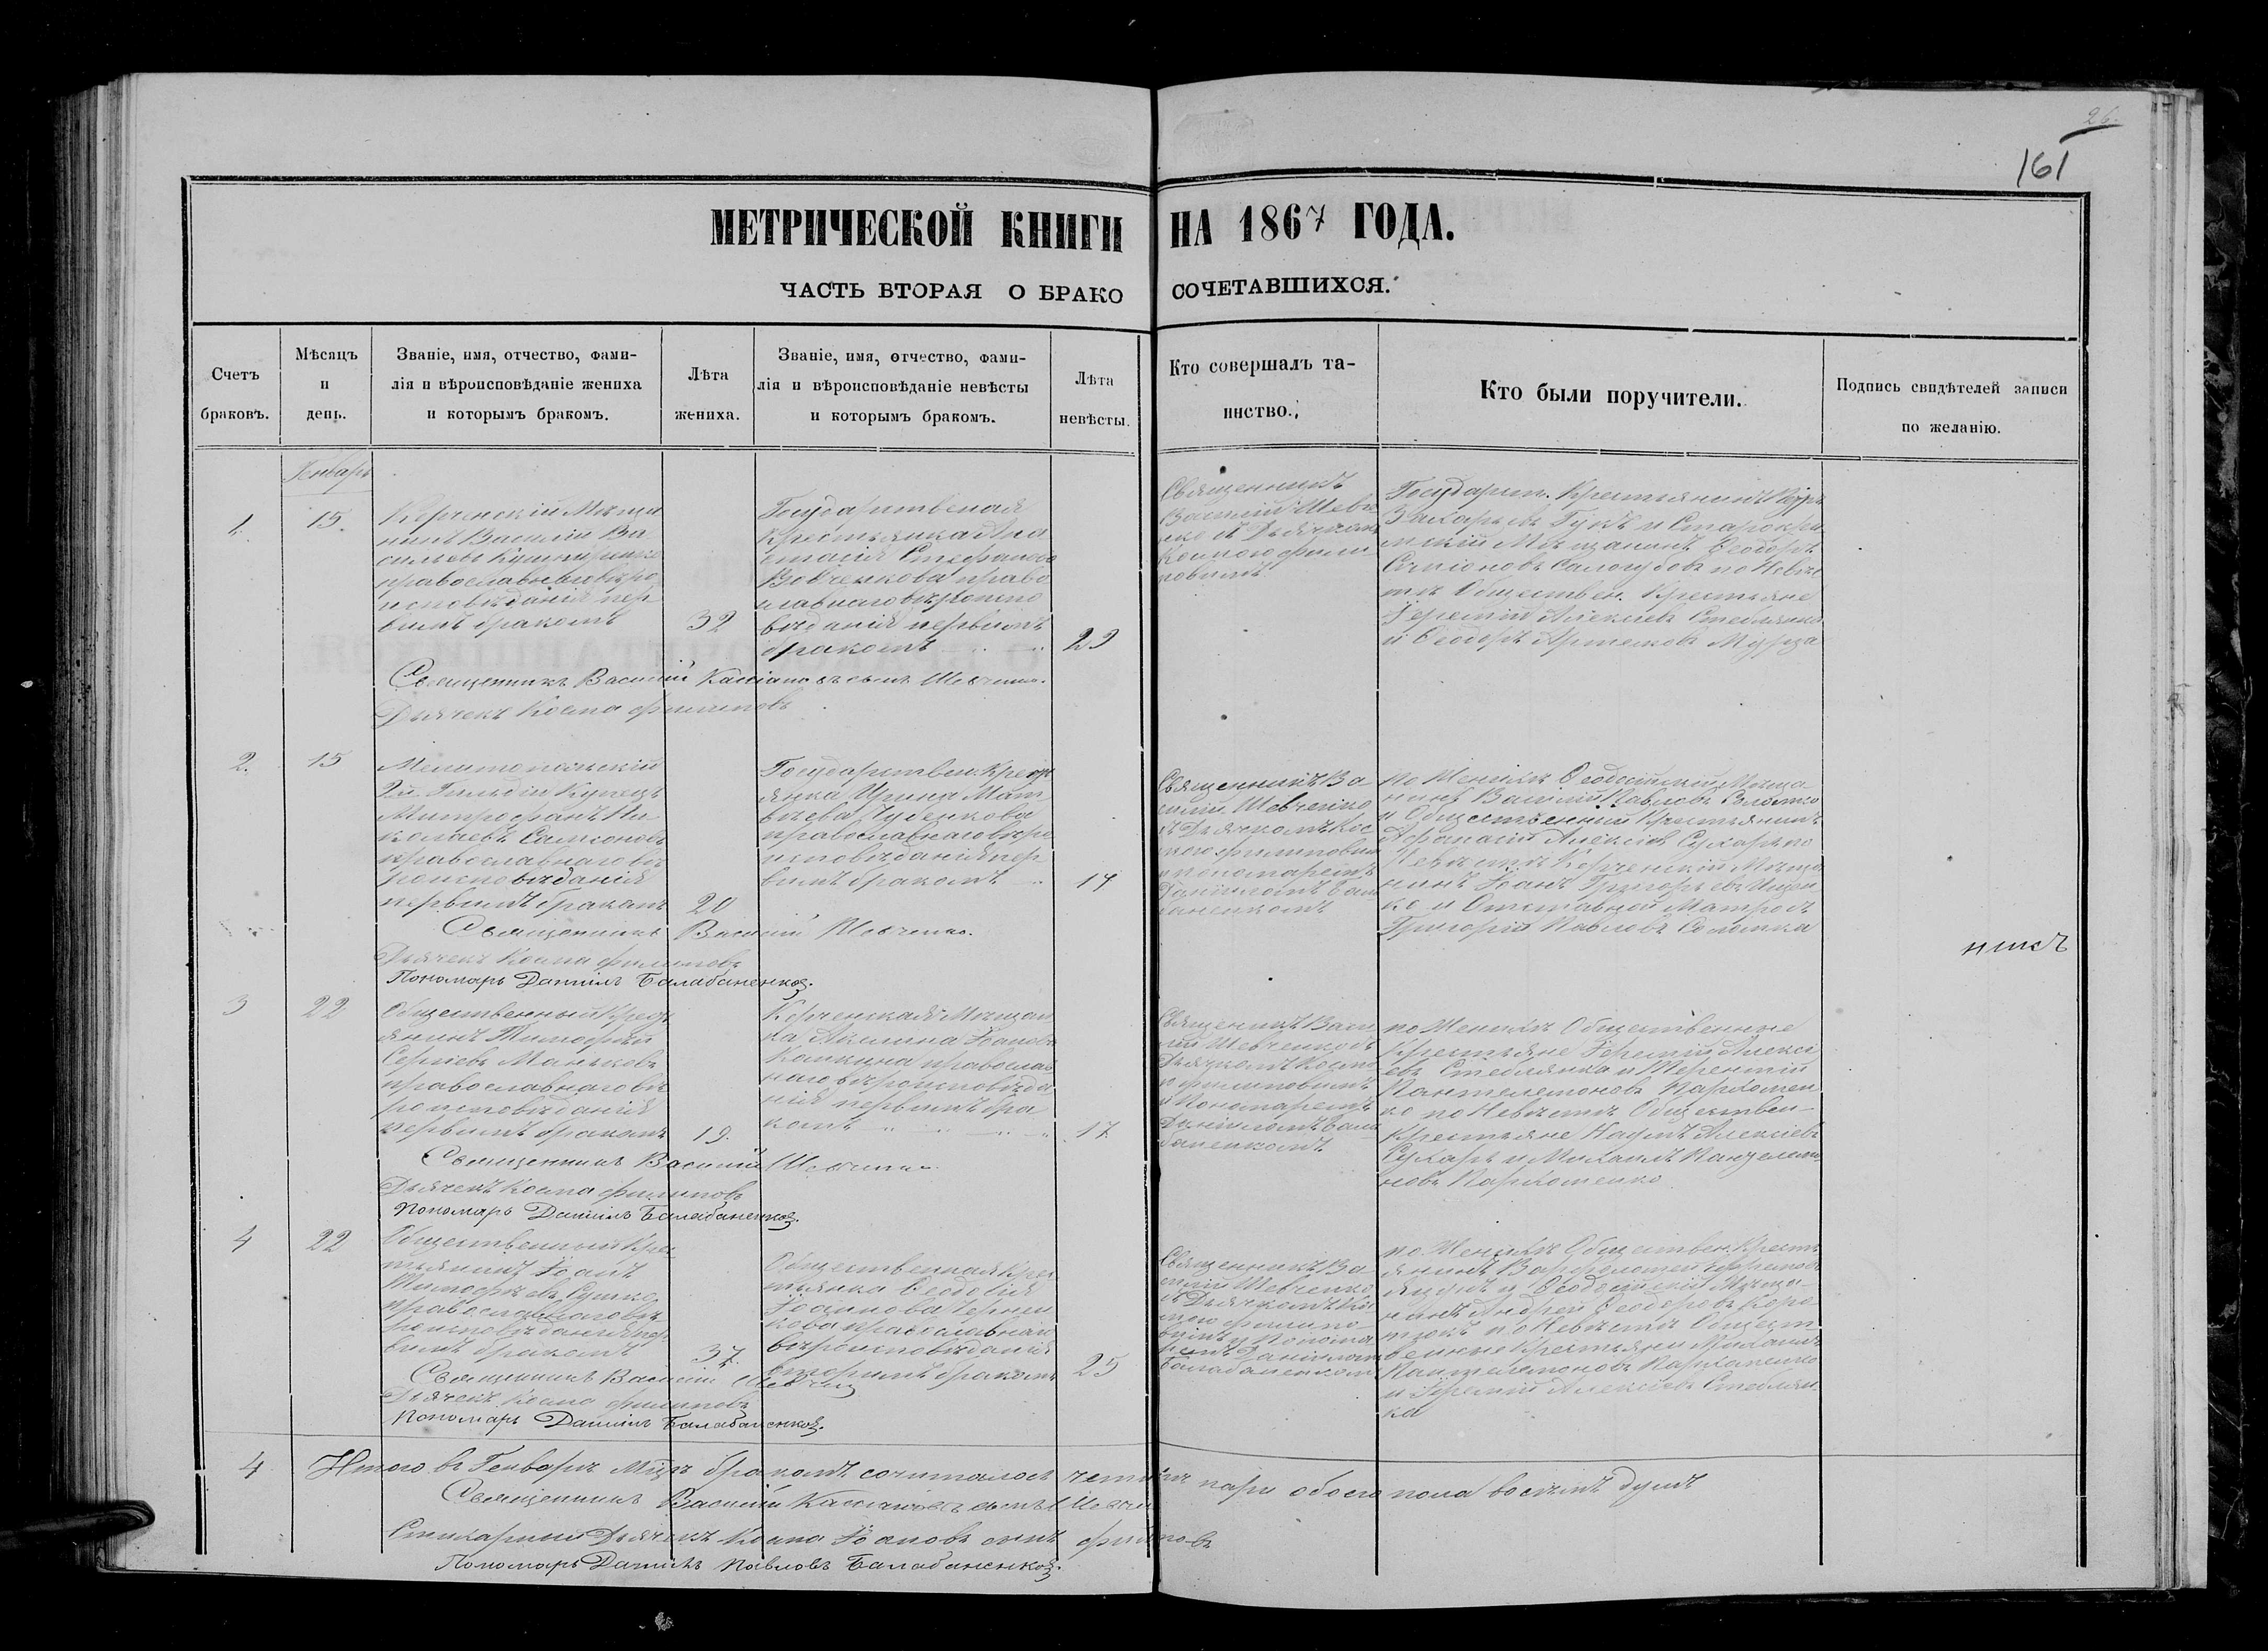 26.
161
МЕТРИЧЕСКОЙ КНИГИ НА 1867 ГОДА.
ЧАСТЬ ВТОРАЯ О БРАКО СОЧЕТАВШИХСЯ.
Счетъ
браковъ.
Мѣсяцъ
и
день.
Званіе, имя, отчество, фами-
лія и вѣроисповѣданіе жениха
и которымъ бракомъ.
Лѣта
жениха.
Званіе, имя, отчество, фами-
лія и вѣроисповѣданіе невѣсты
и которымъ бракомъ.
Лѣта
невѣсты.
Кто совершалъ та-
инство.
Кто были поручители.
Подпись свидѣтелей записи
по желанію.
Генварь
1.
15.
Керченскій Мѣща
нинъ Василій Ва
сильевъ
православнаго вѣро
исповѣданія пер
вымъ бракомъ
32
Государственая
Крестьянка Ана
стасія Стефанова
Вовченкова право
славнаго вѣроиспо
вѣданія первымъ
бракомъ
29
Священникъ
Василій Шевче
нко съ Дьячкомъ
Космою Фили
повымъ
Государст. Крестьянинъ
Захарьевъ Гукъ и Старокры
мскій Мѣщанинъ Ѳеодоръ
Семіоновъ по Невѣс
тѣ Обществен. Крестьяне
Іеремій Алексѣевъ Стеблянка
и Ѳеодоръ Мурза
Священникъ Василій Кассіановъ сынъ Шевченко.
Дьячекъ Косма Филиповъ
2.
15
Мелитопольскій
2й Гильдіи Купецъ
Митрофанъ Ни
колаевъ Самсоновъ
православнаго вѣ
роисповѣданія
первымъ бракомъ
20
Государствен. Крест
янка Ирина Мат
вѣева
православнаго вѣро
исповѣданія пер
вымъ бракомъ
17
Священникъ Ва
силій Шевченко
съ Дьячкомъ Кос
мою Филиповым
и пономаремъ
Даніиломъ Бала
баненкомъ
по Женихѣ Ѳеодосійскій Мѣща
нинъ Василій Павловъ
и Общественный Крестьянинъ
Афанасій Алексѣевъ Сухарь по
Невѣстѣ Керченскій Мѣща
нинъ Іоанъ Григорьевъ
ко и Отставной Матросъ
Григорій Павловъ Соломка
нисъ
Священникъ Василій Шевченко.
Дьячекъ Косма Филиповъ
Пономарь Даніилъ Балабаненков.
3
22
Общественный Крест
янинъ Тимофей
Сергіевъ Маньковъ
православнаго вѣ
роисповѣданія
первымъ бракомъ
19.
Керченская Мѣщан
ка Акилина Іоанова
православ
наго вѣроисповѣда
нія первымъ бра
комъ
17
Священникъ Васи
лій Шевченко съ
Дьячкомъ Космо
ю Филиповымъ
и Пономаремъ
Даніиломъ Бала
баненкомъ
по Женихѣ Общественные
Крестьяне Іеремій Алексѣ
евъ Стеблянка и Терентій
Пантелеймоновъ Пархомен
ко по Невѣстѣ Обществен-
Крестьяне Наумъ Алексѣевъ
Сухарь и Михаилъ Пантелеймо
новъ Пархоменко
Священникъ Василій Шевченко
Дьячекъ Косма Филиповъ
Пономарь Даніилъ Балабаненков.
4
22
Общественный Крес
тьянинъ Іоанъ
Тимофѣевъ Сушко
православнаго вѣ
роисповѣданія пер
вымъ бракомъ
37.
Общественная Крес
тьянка Ѳеодосія
Іоаннова
кова православнаго
вѣроисповѣданія
вторымъ бракомъ
25
Священникъ Ва
силій Шевченко
съ Дьячкомъ Кос
мою Филипо
вымъ и Понома
ремъ Даніиломъ
Балабаненкомъ
по Женихѣ Обществен. Крестъ
янинъ Варфоломей Ефремовъ
и Ѳеодосійскій Мѣща
нинъ Андрей Ѳеодоровъ Коро
по Невѣстѣ Общест
венные Крестьяни Михаилъ
Пантелеймоновъ Пархоменко
и Іеремій Алексѣевъ Стеблян
ка
Священникъ Василій Шевченко
Дьячекъ Косма Филиповъ
Пономарь Даніилъ Балабаненков.
4
Итого въ Генварѣ Мцѣ бракомъ сочиталось четыре пары обоего пола восемъ душъ
Священникъ Василій Кассіановъ сынъ Шевченко
Стихарный Дьячекъ Косма Іоановъ сынъ Филиповъ
Пономарь Даніилъ Павловъ Балабаненков.